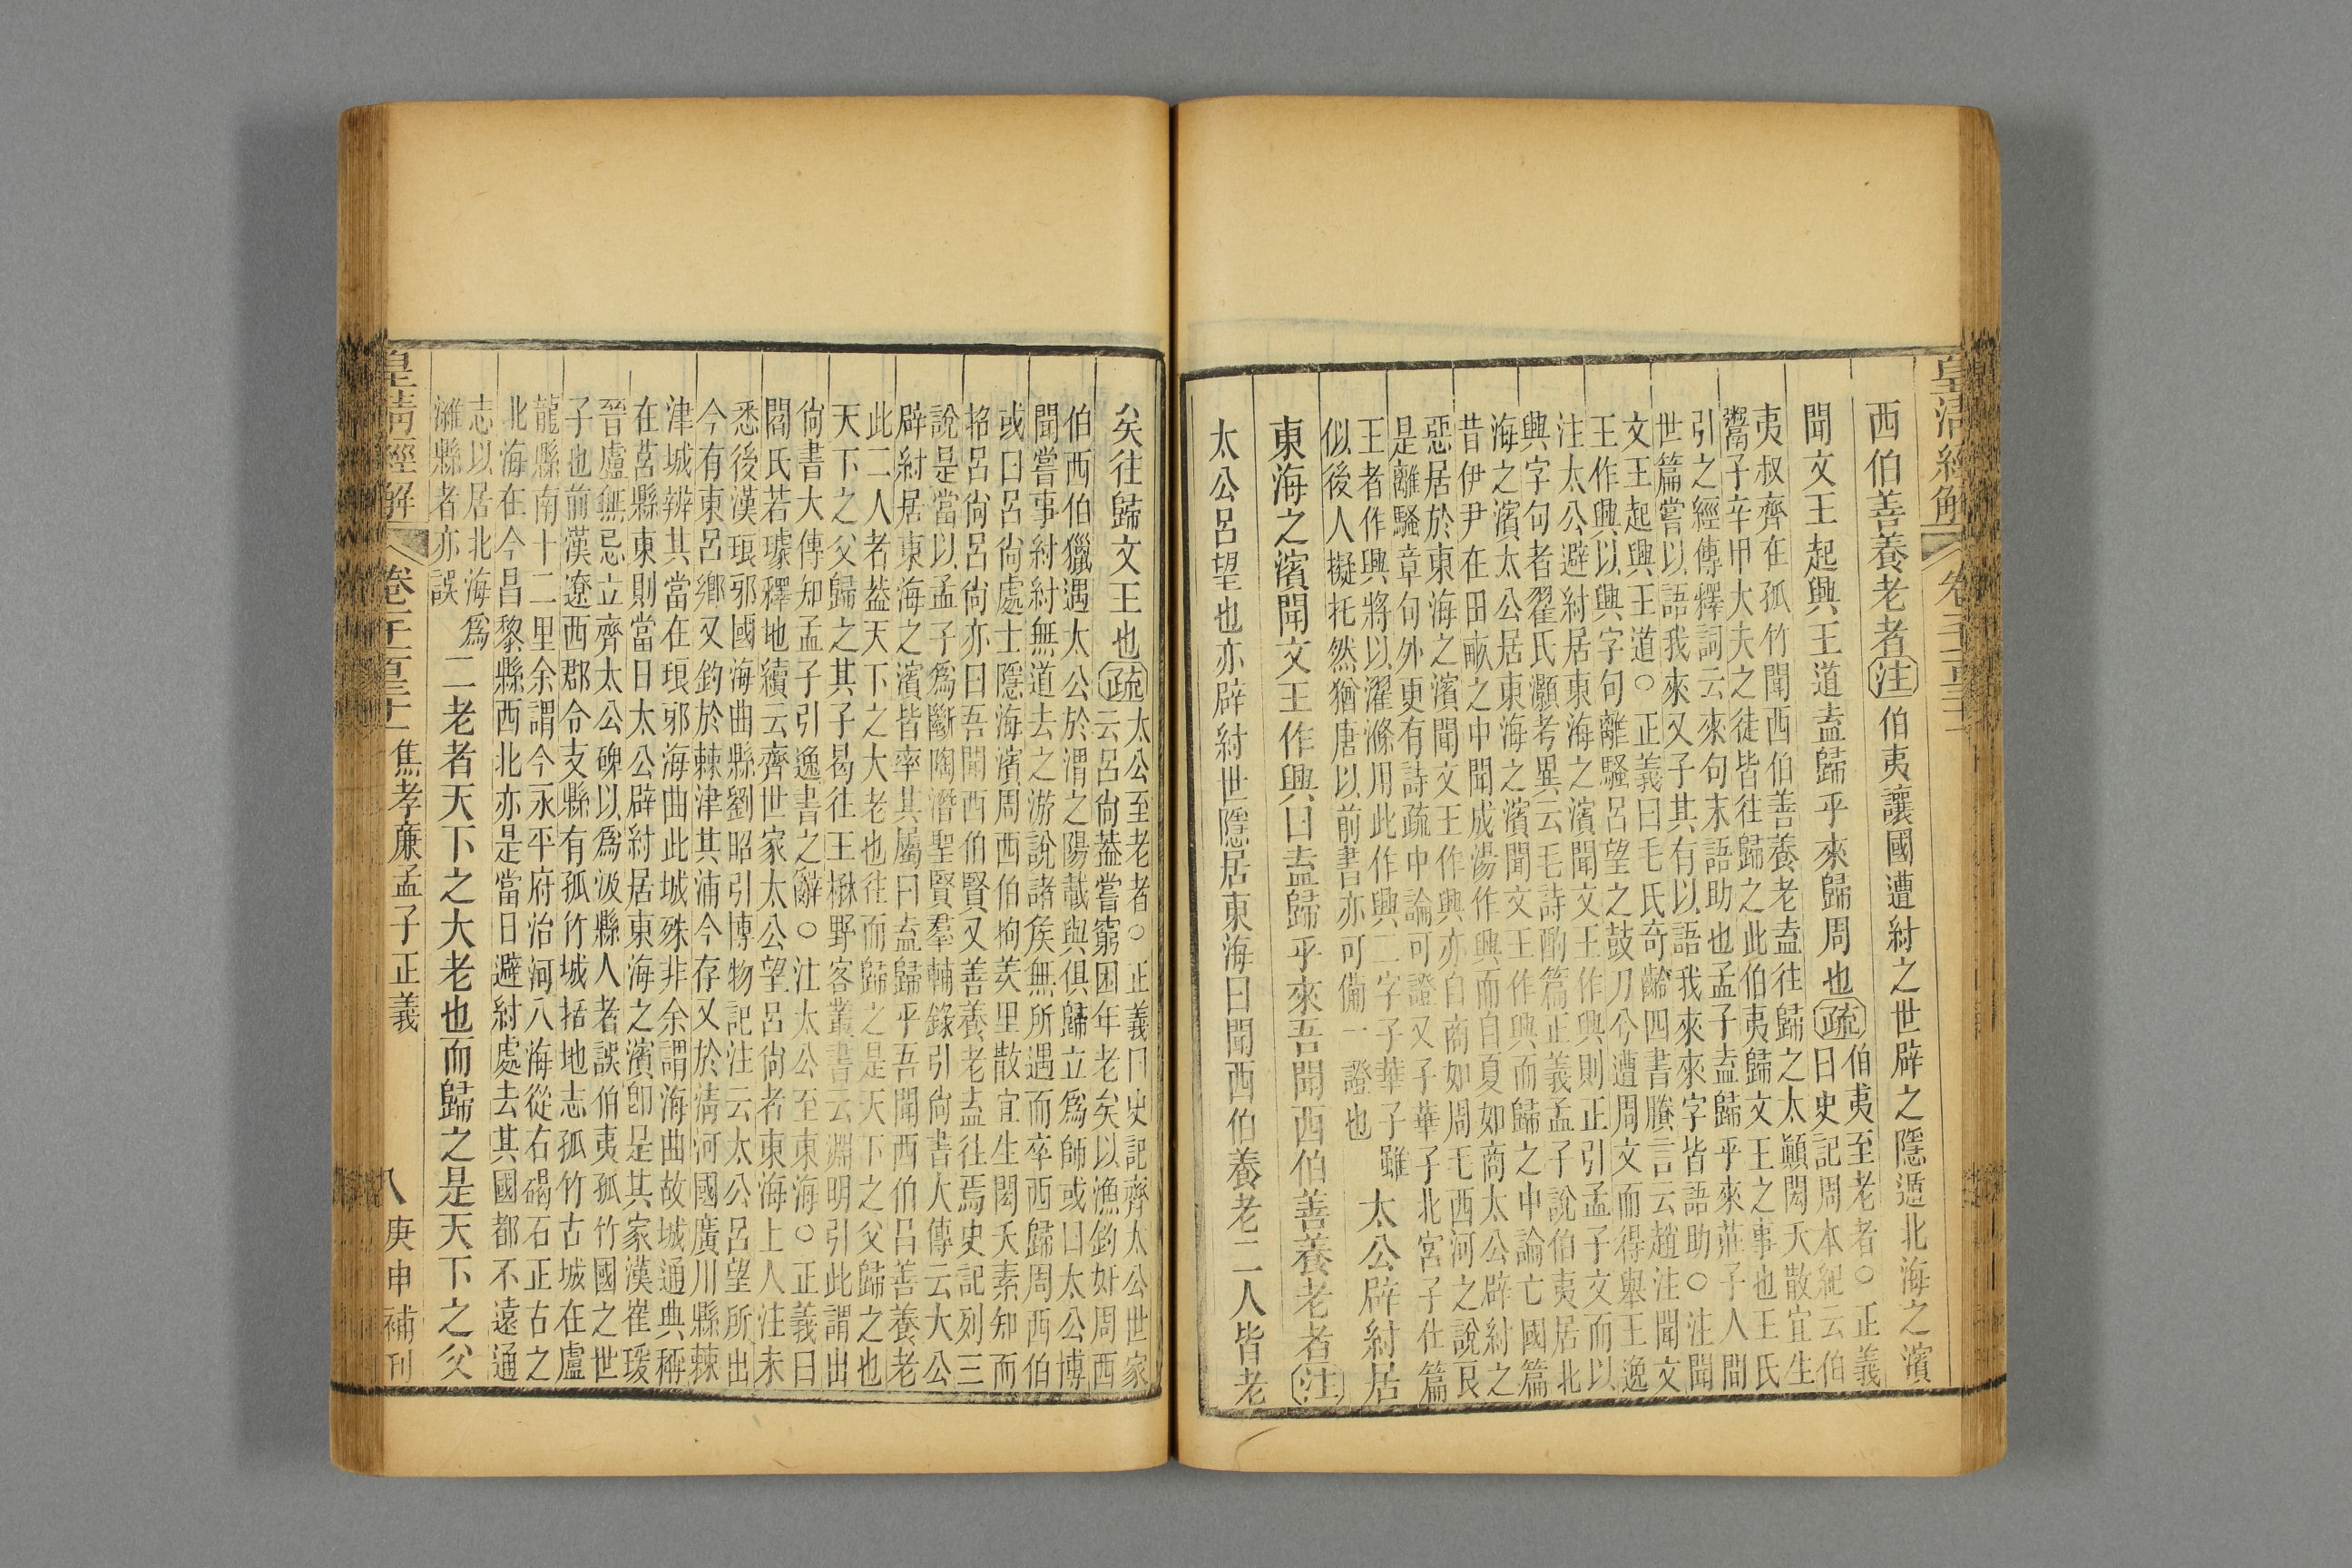 皇清經解
西伯善養老者注伯夷讓國遭紂之世辟之隱遁北海之濱
聞文王起興王道盍歸乎來歸周也疏
伯夷至老者○正義
曰史記周本紀云伯
夷叔齊在孤竹聞西伯善養老盍往歸之太顚閎夭散宜生
鬻子辛甲大夫之徒皆往歸之此伯夷歸文王之事也王氏
引之經傳釋詞云來句末語助也孟子盍歸乎來莊子人間
世篇嘗以語我來又子其有以語我來來字皆語助○注聞
文王起興王道○正義曰毛氏奇齡四書賸言云趙注聞文
王作興以興字句離騷呂望之鼓刀兮遭周文而得舉王逸
注太公避紂居東海之濱聞文王作興則正引孟子文而以
興字句者翟氏灝考異云毛詩酌篇正義孟子說伯夷居北
海之濱太公居東海之濱聞文王作興而歸之中論亡國篇
昔伊尹在田畝之中聞成湯作興而自夏如商太公辟紂之
惡居於東海之濱聞文王作興亦自商如周毛西河之說良
是離騷章句外更有詩疏中論可證又子華子北宮子仕篇
王者作興將以濯滌用此作興二字子華子雖
似後人擬托然猶唐以前書亦可備一證也
太公辟紂居
東海之濱聞文王作興曰盍歸乎來吾聞西伯善養老者注
太公呂望也亦辟紂世隱居東海曰聞西伯養老二人皆老
矣往歸文王也疏
太公至老者○正義曰史記齊太公世家
云呂尙葢嘗窮困年老矣以漁釣奸周西
伯西伯獵遇太公於渭之陽載與俱歸立爲師或曰太公博
聞嘗事紂紂無道去之游說諸矦無所遇而卒西歸周西伯
或曰呂尙處士隱海濱周西伯拘羑里散宜生閎夭素知而
招呂尙呂尙亦曰吾聞西伯賢又善養老盍往焉史記列三
說是當以孟子爲斷陶潛聖賢羣輔錄引尙書大傳云大公
辟紂居東海之濱皆率其屬曰盍歸乎吾聞西伯呂善養老
此二人者葢天下之大老也往而歸之是天下之父歸之也
天下之父歸之其子曷往王楙野客叢書云淵明引此謂出
尙書大傳知孟子引逸書之辭○注太公至東海○正義曰
閻氏若璩釋地續云齊世家太公望呂尙者東海上人注未
悉後漢琅邪國海曲縣劉昭引博物記注云太公呂望所出
今有東呂鄉又釣於棘津其浦今存又於清河國廣川縣棘
津城辨其當在琅邪海曲此城殊非余謂海曲故城通典稱
在莒縣東則當日太公辟紂居東海之濱卽是其家漢崔瑗
晉盧無忌立齊太公碑以爲汲縣人者誤伯夷孤竹國之世
子也前漢遼西郡令支縣有孤竹城括地志孤竹古城在盧
龍縣南十二里余謂今永平府治河八海從右碣石正古之
北海在今昌黎縣西北亦是當日避紂處去其國都不遠通
志以居北海爲
濰縣者亦誤
二老者天下之大老也而歸之是天下之父
皇清經解
焦孝廉孟子正義
八
庚申補刊